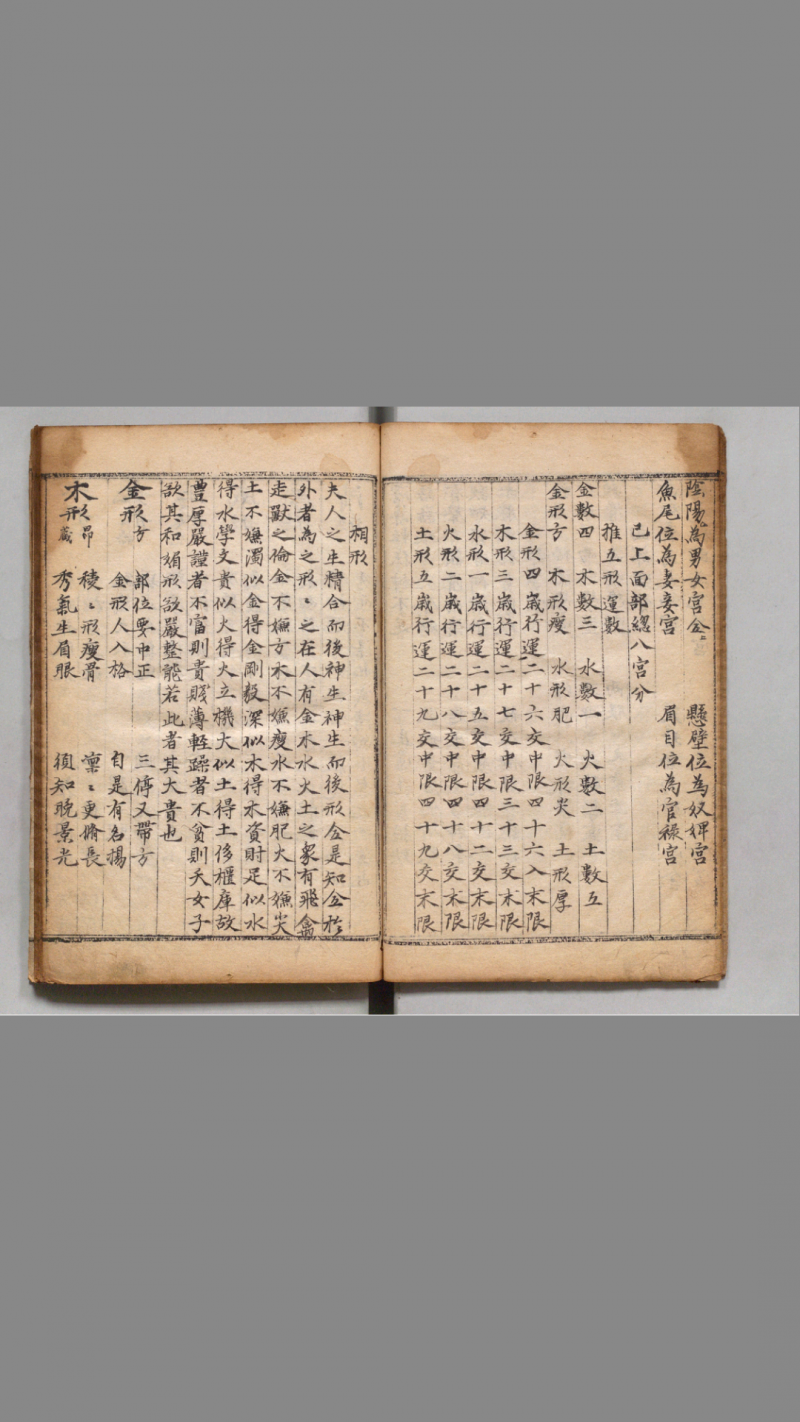 陰陽為男女宮全〻　懸壁位為奴婢宮
魚尾位為妻妾宮　眉目位為官祿宮
已上面部總八宮分
推五形運數
金數四　木數三　水數一　火數二　土數五
金形方　木形瘦　水形肥　火形尖　土形厚
金形四歲行運二十六交中限四十六入末限
木形三歲行運二十七交中限三十三交末限
水形一歲行運二十五交中限四十二交末限
火形二歲行運二十八交中限四十八交末限
土形五歲行運二十九交中限四十九交末限
相形
夫人之生精合而後神生神生而後形全是知全於
外者為之形〻之在人有金木水火土之象有飛禽
走獸之倫金不嫌方木不嫌瘦水不嫌肥火不嫌尖
土不嫌濁似金得金剛毅深似木得木資財足似水
得水學文貴似火得火立機大似土得土侈櫃庫故
豊厚嚴謹者不富則貴賤薄輕躁者不貧則夭女子
欲其和媚形欲嚴整龍若此者其大貴也
金形方　部位要中正　三停又帶方
金形人入格　自是有名揚
木形昂藏　稜〻形瘦骨　凛〻更脩長
秀氣生眉眼　須知晚景光